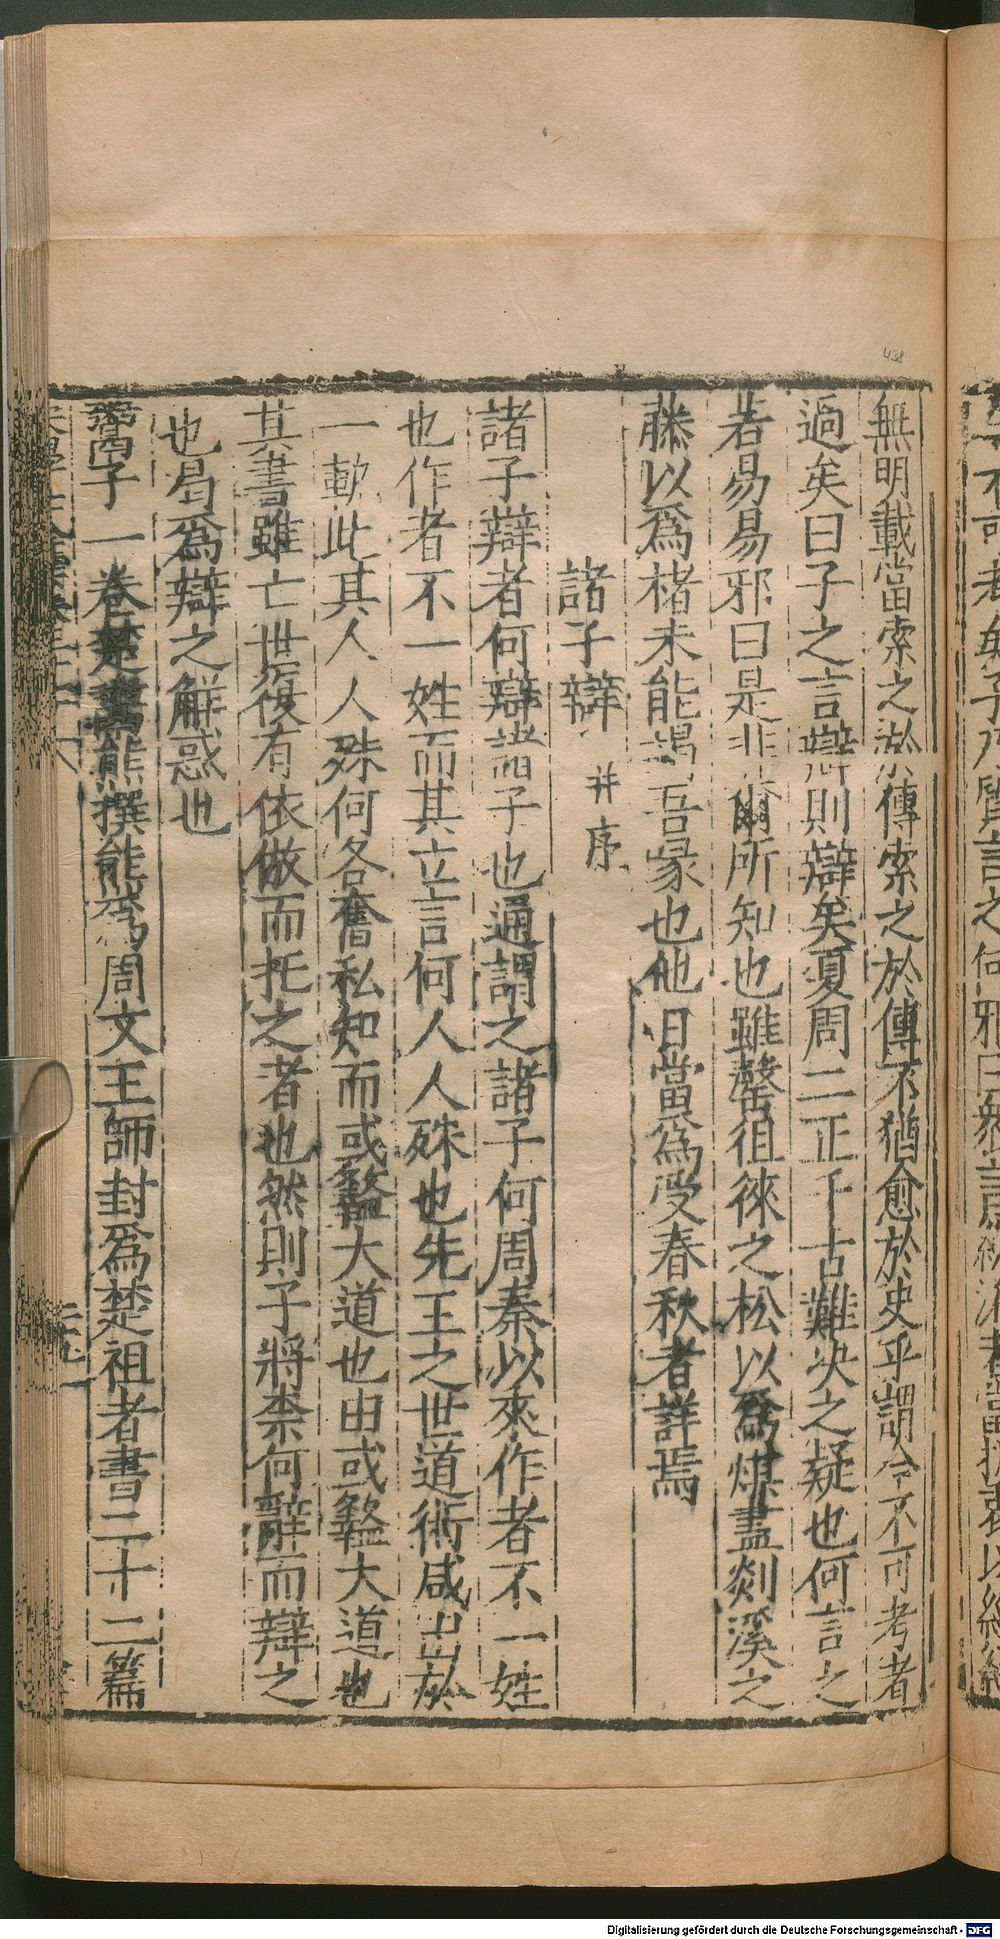 無明載當索之於傳索之於傳不猶愈於史乎謂今不可考者
過矣曰子之言辯則辯矣夏周二正千古難决之疑也何言之
若易易邪曰是非爾所知也雖罄徂徠之松以爲煤盡剡溪之
藤以爲楮未能竭吾喙也他日當爲受春秋者詳焉
諸子辯 并序
諸子辯者何辯諸子也通謂之諸子何周秦以來作者不一姓
也作者不一姓而其立言何人人殊也先王之世道術咸出於
一軌此其人人殊何各奮私知而或盭大道也由或盭大道也
其書雖亡世復有依倣而托之者也然則子將柰何辭而辯之
也曷爲辯之解惑也
鬻子一卷楚鬻熊撰熊爲周文王師封爲楚祖者書二十二篇
438
Digitalisierung gefördert durch die Deutsche Forschungsgemeinschaft - DFG